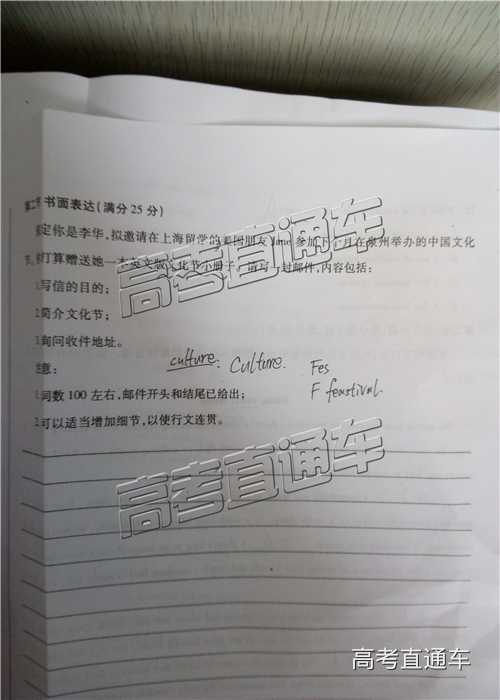 书面表达(满分25分)
定你是李华,拟邀请在上海留学的美国朋友Jane参加下个月在泉州举办的中国文化
节,你打算赠送她一本英文版文化节小册子。请写一封邮件,内容包括:
1.写信的目的;
2.简介文化节;
3.询问收件地址。
注意:
culture. Culture. Fes
F feastival.
1.词数100左右,邮件开头和结尾已给出;
2.可以适当增加细节,以使行文连贯。
高考直通车
高考直通车
高考直通车